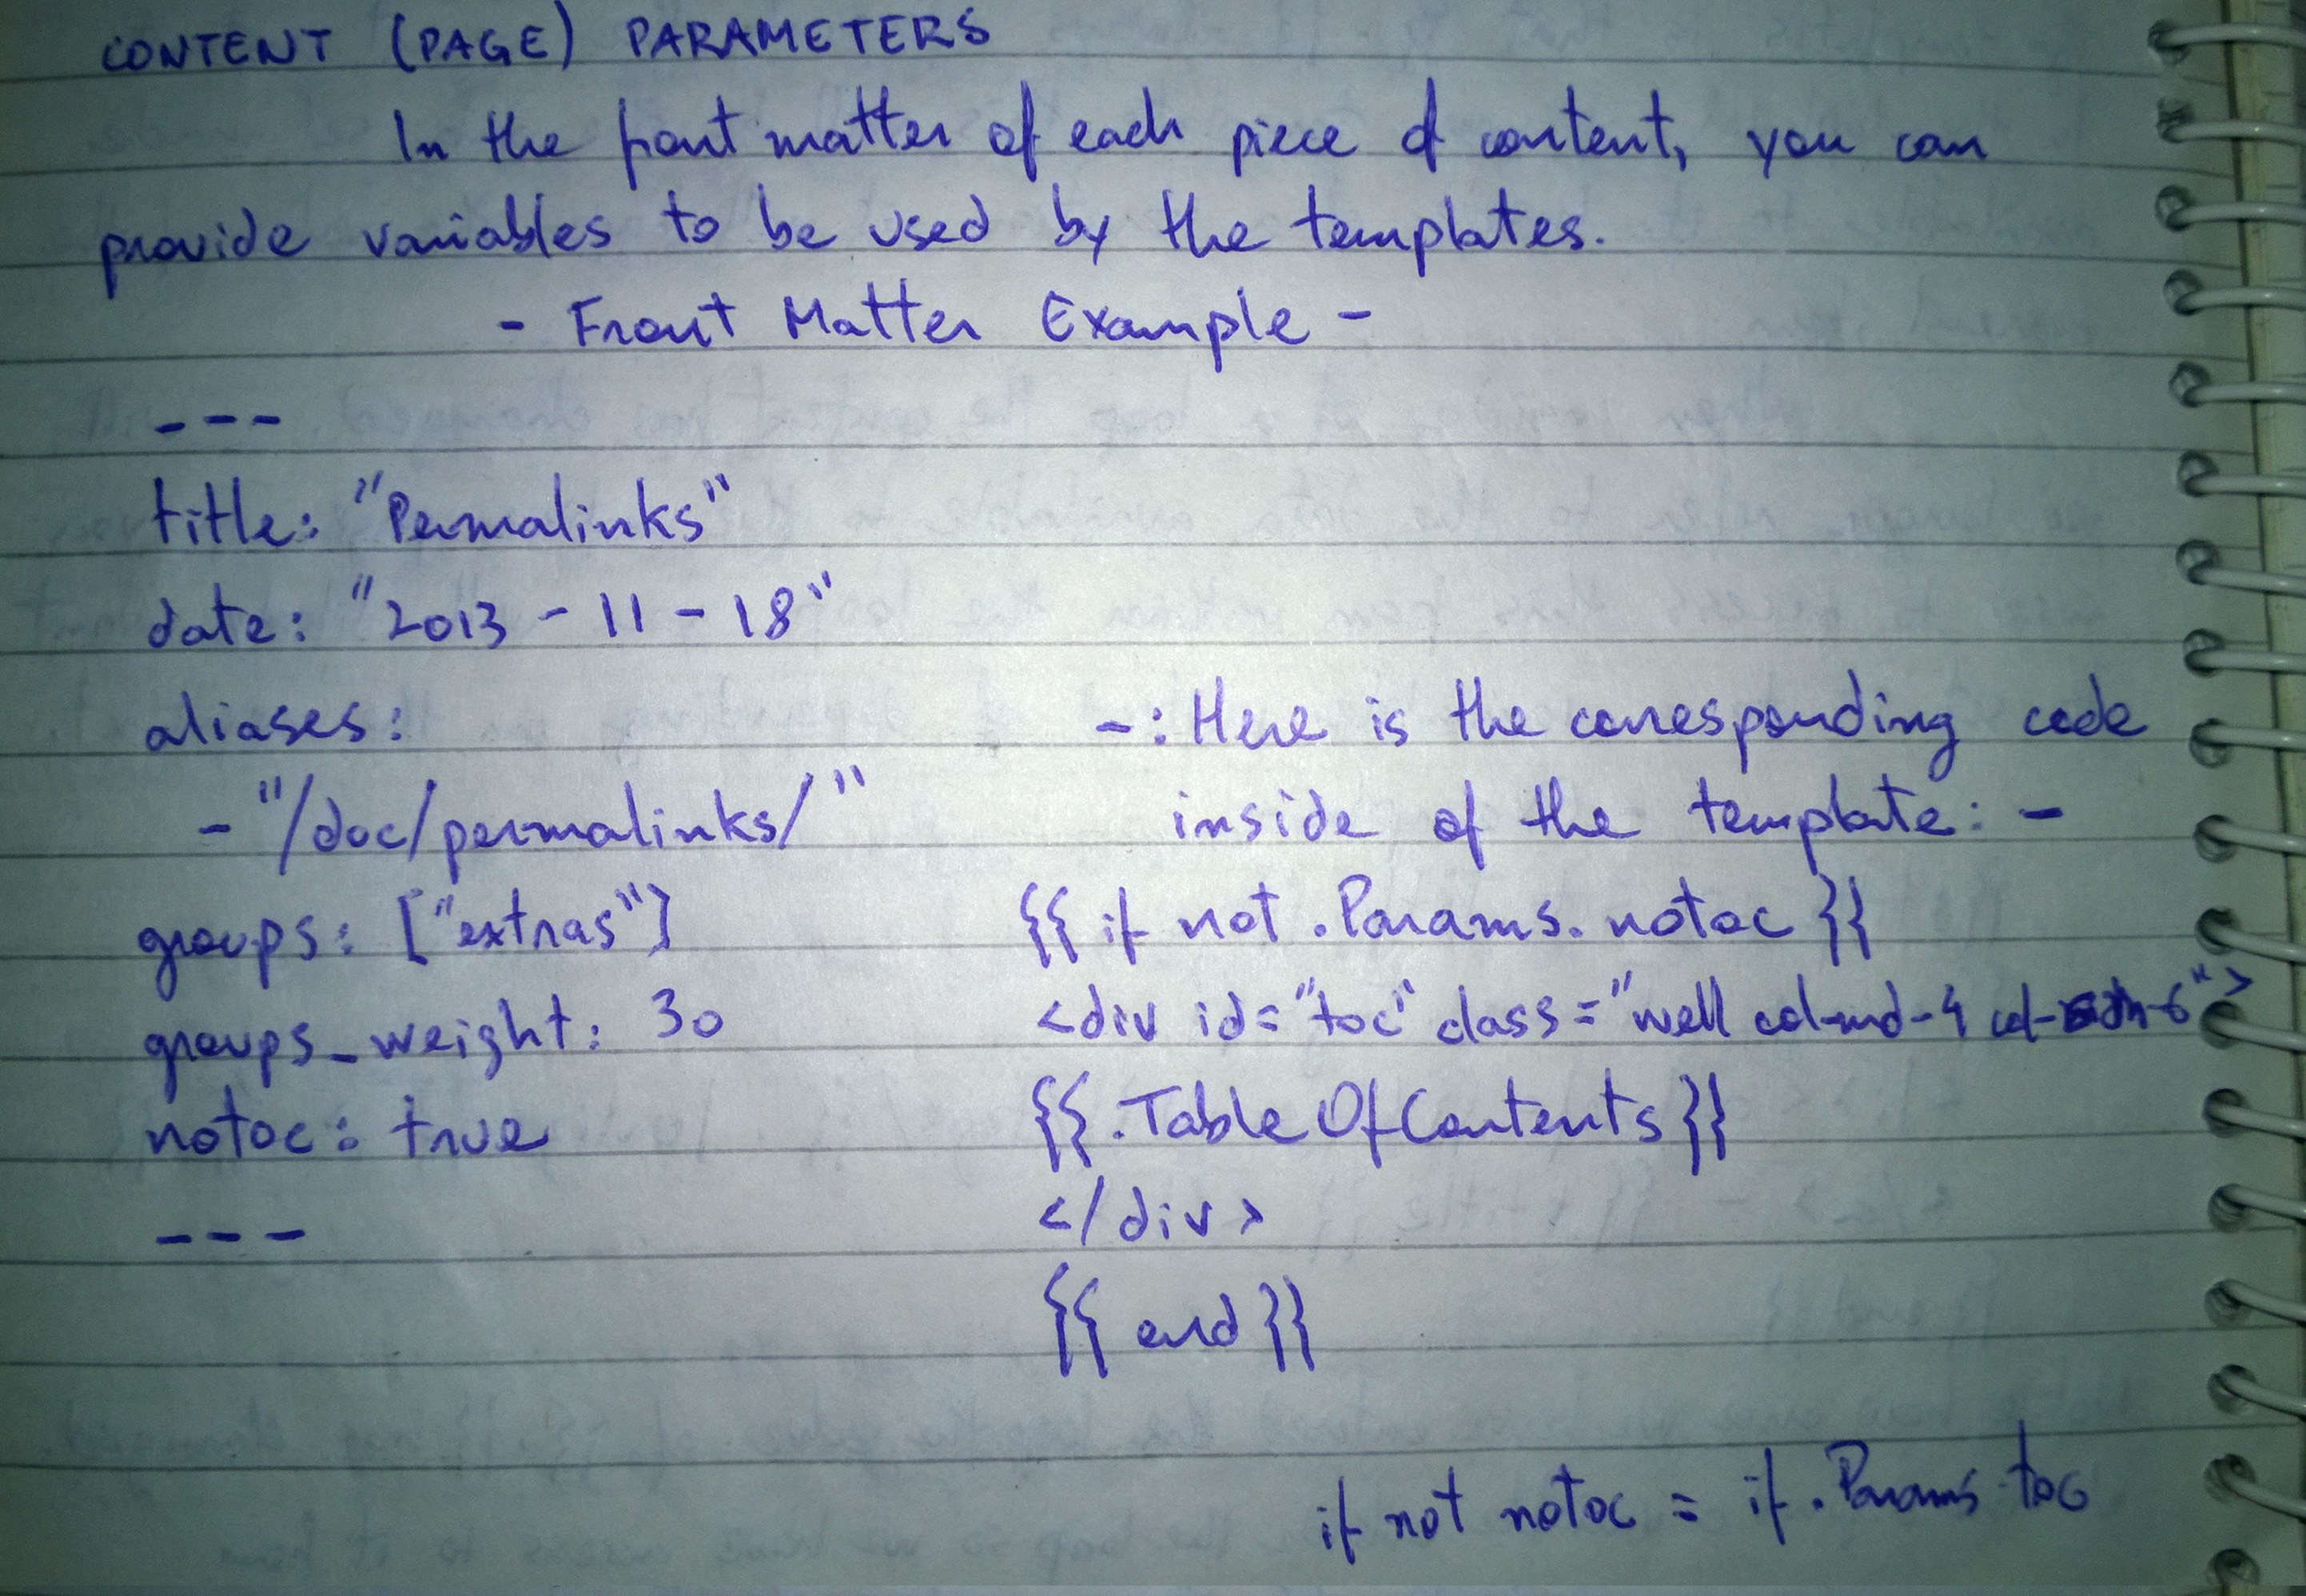 CONTENT (PAGE) PARAMETERS
In the font matter of each piece of content, you can
provide variables to be used by the templates.
- Front Matter Example -
---
title: "Permalinks"
date: "2013-11-18"
aliases:
- "/doc/permalinks/"
groups: ["extras"]
groups_weight: 30
notoc: true
---
-: Here is the corresponding code
inside of the template: -
{{ if not .Params.notoc }}
<div id="toc" class="well col-md-4 col-sm-6">
{{ .TableOfContents }}
</div>
{{ end }}
if not notoc = if .Params toc